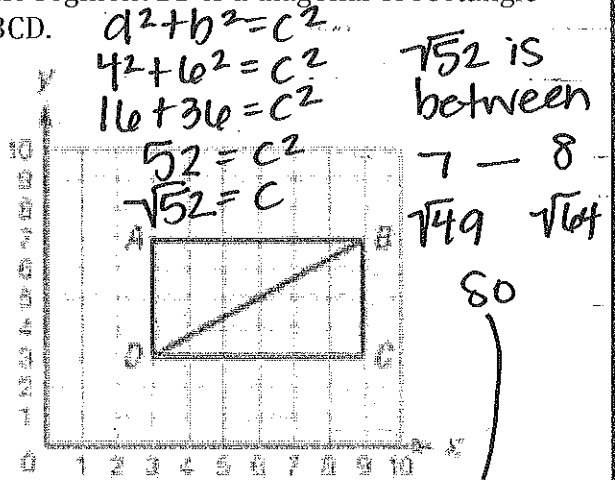 BCD.
a²+b²=c²
4²+6²=c²
16+36=c²
52=c²
√52=c
√52 is
between
7 — 8
√49 √64
so
y
10
A B
D C
0 1 2 3 4 5 6 7 8 9 10 x